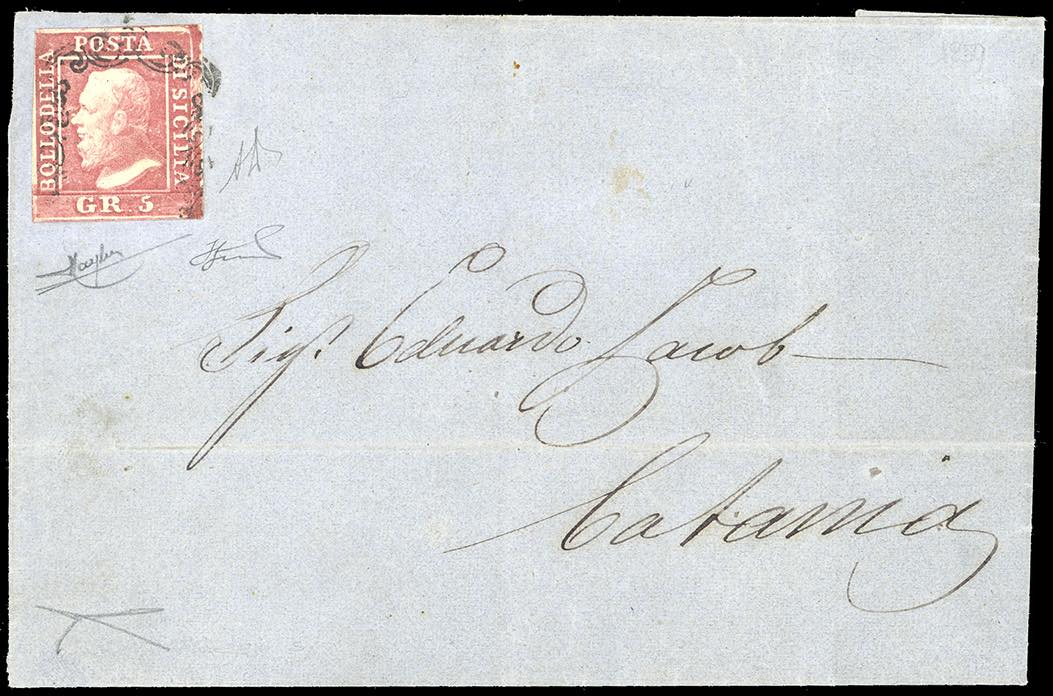 POSTA
BOLLO DELLA
DI SICILIA
GR. 5
Sigr. Eduardo Jacob
Catania